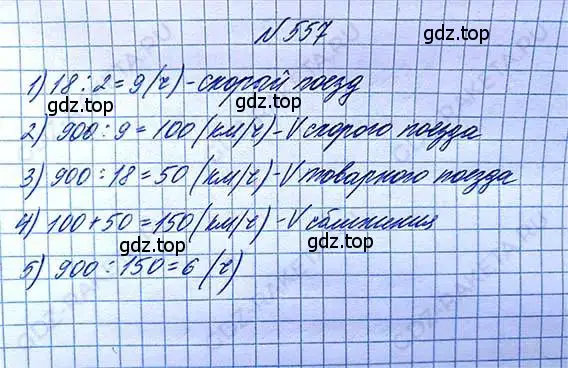 № 557
1) 18 : 2 = 9 (ч) - скорый поезд
gdz.top
gdz.top
2) 900 : 9 = 100 (км/ч) - V скорого поезда
3) 900 : 18 = 50 (км/ч) - V товарного поезда
gdz.top
gdz.top
4) 100 + 50 = 150 (км/ч) - V сближения
gdz.top
gdz.top
5) 900 : 150 = 6 (ч)
gdz.top
gdz.top